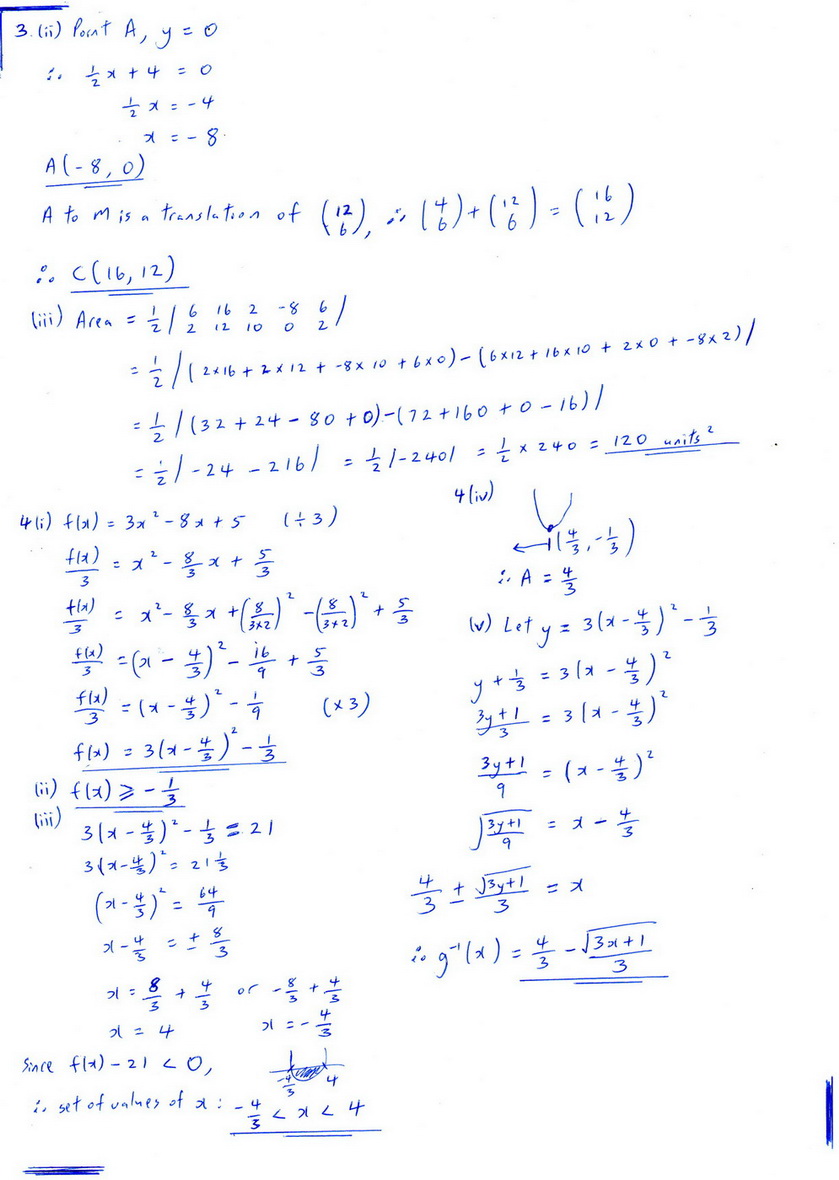 3. (ii) Point A, y = 0
∴ ½x + 4 = 0
½x = -4
x = -8.
A(-8, 0)
A to M is a translation of (12 6), ∴ (4 6) + (12 6) = (16 12)
∴ C(16, 12)
(iii) Area = ½ | 6 16 2 -8 6
2 12 10 0 2 |
= ½ |(2×16 + 2×12 + -8×10 + 6×0) - (6×12 + 16×10 + 2×0 + -8×2)|
= ½ |(32 + 24 - 80 + 0) - (72 + 160 + 0 - 16)|
= ½ |-24 - 216| = ½ |-240| = ½ × 240 = 120 units²
4(i) f(x) = 3x² - 8x + 5 (÷3)
f(x)/3 = x² - 8/3 x + 5/3
f(x)/3 = x² - 8/3 x + (8/3×2)² - (8/3×2)² + 5/3
f(x)/3 = (x - 4/3)² - 16/9 + 5/3
f(x)/3 = (x - 4/3)² - 1/9 (×3)
f(x) = 3(x - 4/3)² - 1/3
(ii) f(x) ≥ -1/3
(iii)
3(x - 4/3)² - 1/3 = 21
3(x - 4/3)² = 21 1/3
(x - 4/3)² = 64/9
x - 4/3 = ± 8/3
x = 8/3 + 4/3 or -8/3 + 4/3
x = 4 x = -4/3
Since f(x) - 21 < 0, -4/3 4
∴ set of values of x : -4/3 < x < 4
4(iv)
(4/3, -1/3)
∴ A = 4/3
(v) Let y = 3(x - 4/3)² - 1/3
y + 1/3 = 3(x - 4/3)²
3y+1/3 = 3(x - 4/3)²
3y+1/9 = (x - 4/3)²
√(3y+1/9) = x - 4/3
4/3 ± √(3y+1)/3 = x
∴ g⁻¹(x) = 4/3 - √(3x+1)/3